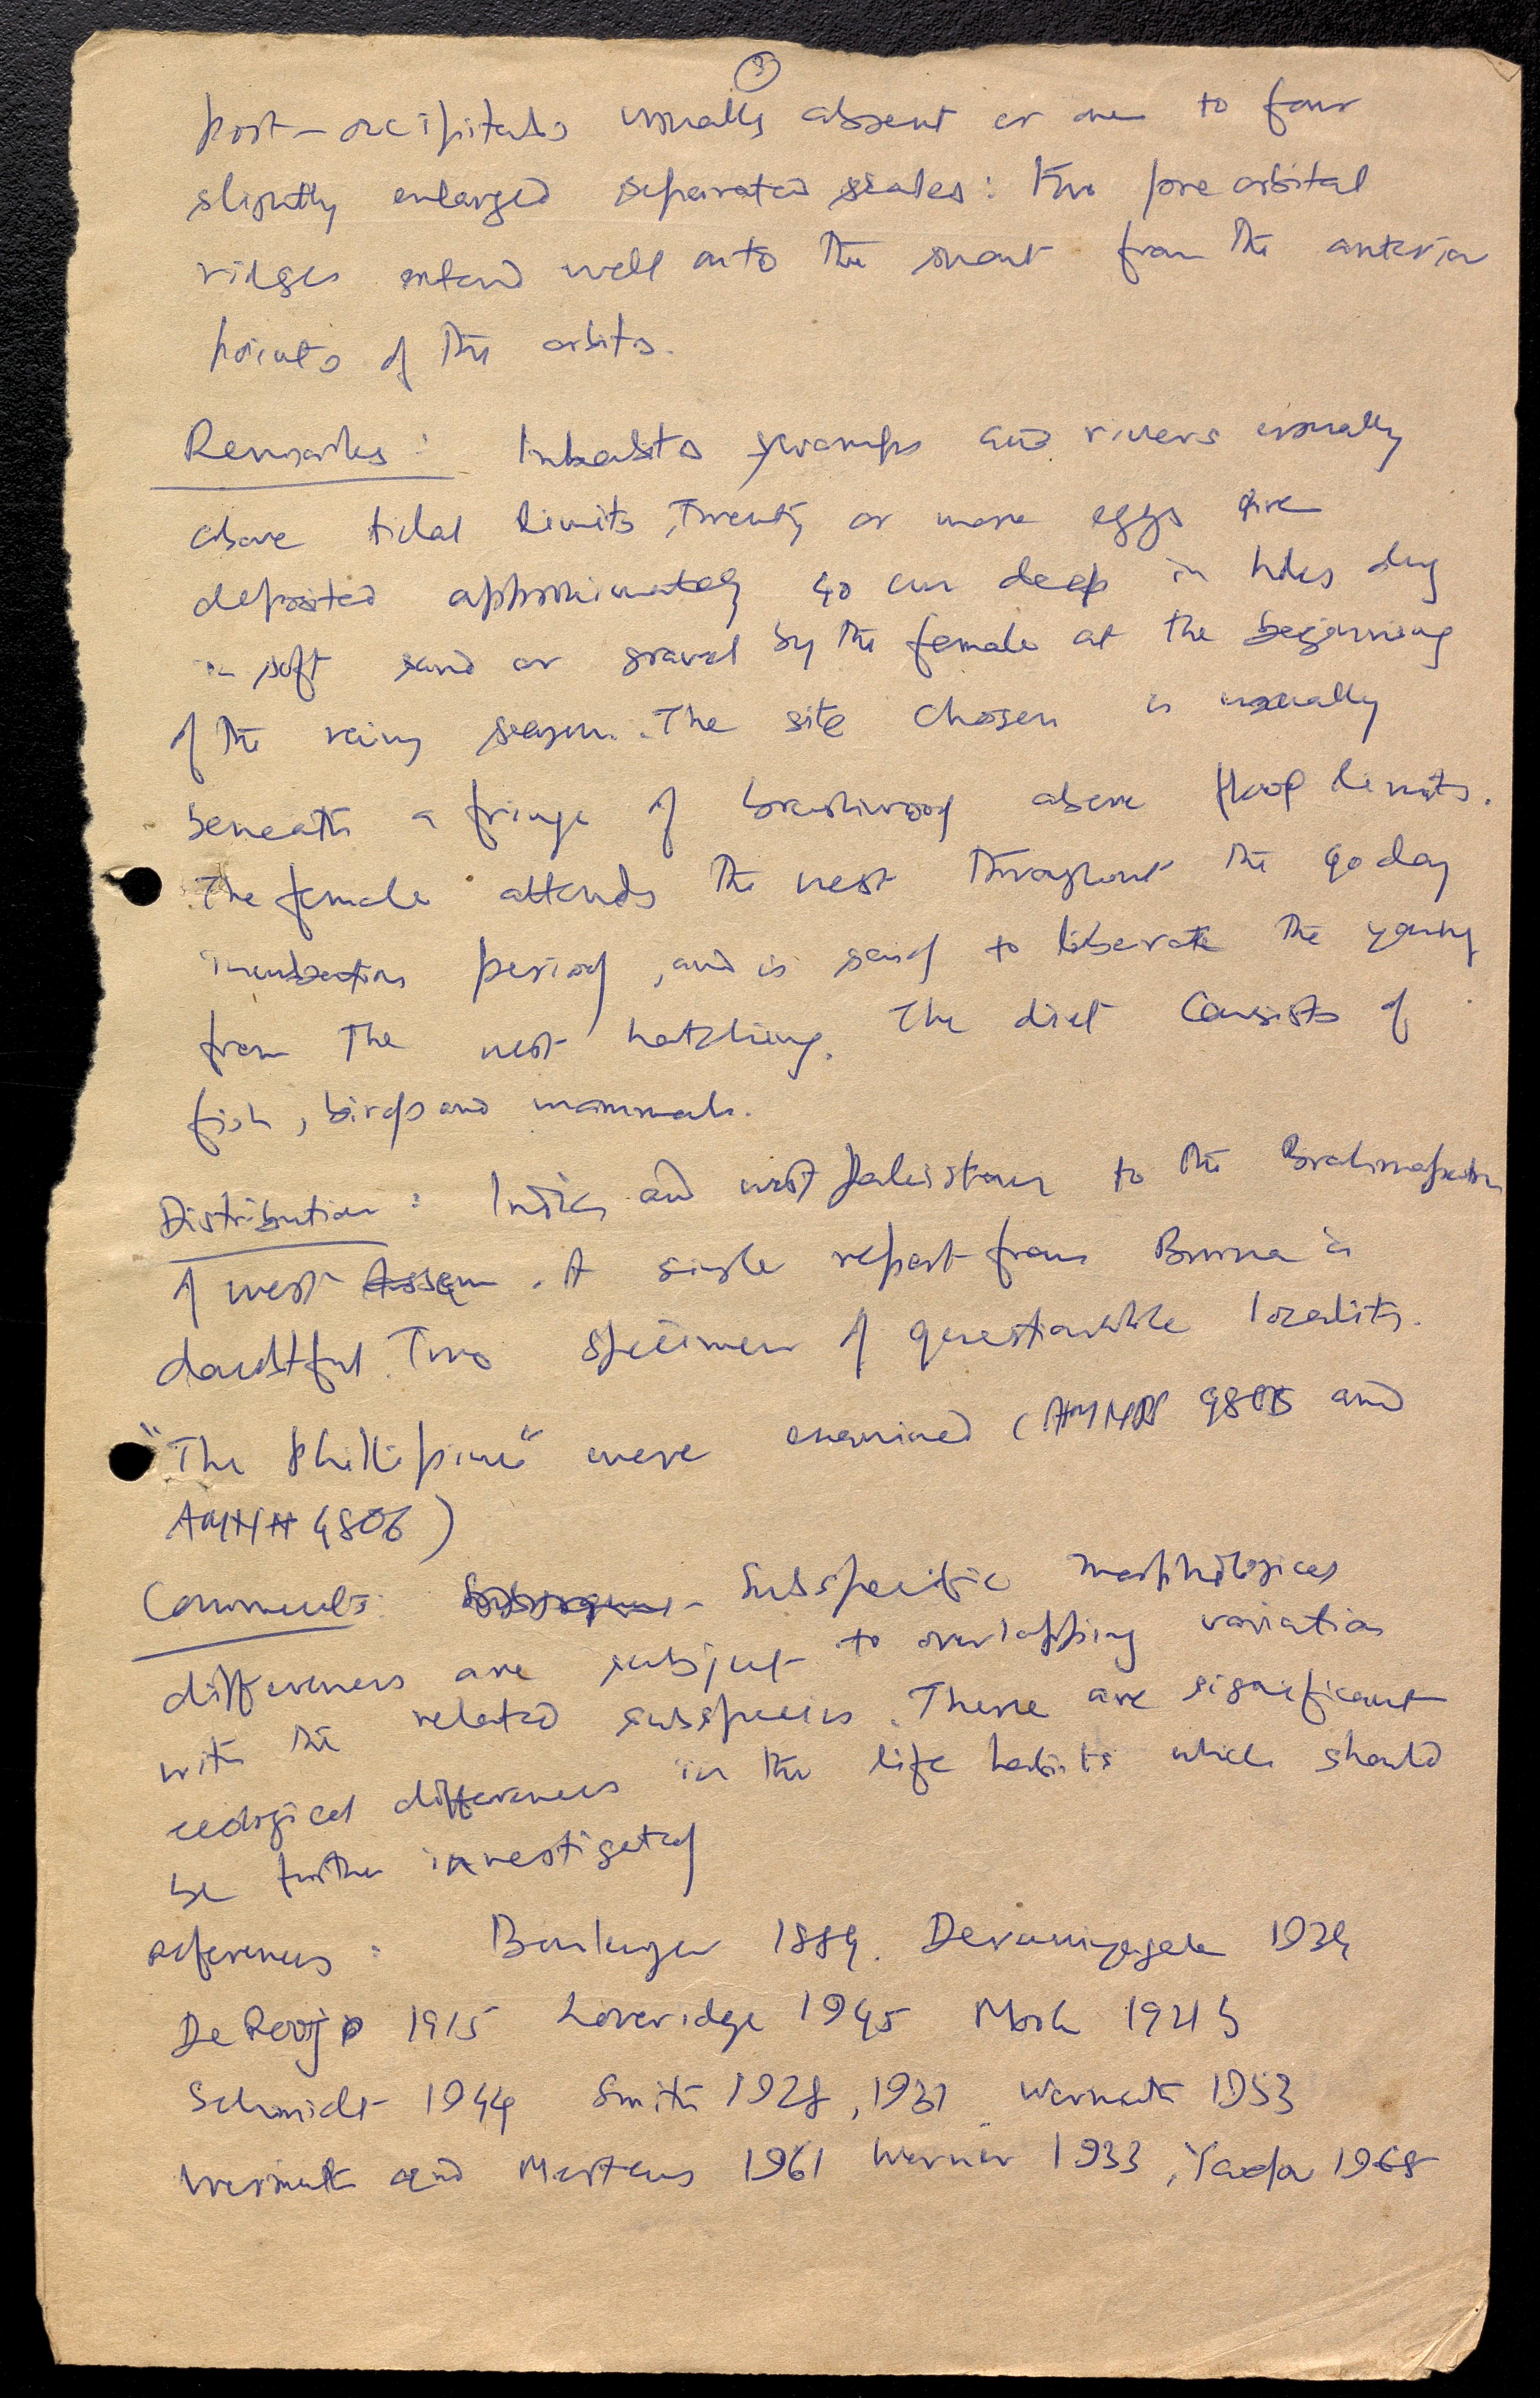 3
post-occipitals usually absent or one to four
slightly enlarged separated scales: two pre orbital
ridges extend well onto the snout from the anterior
points of the orbits.
Remarks: Inhabits swamps and rivers usually
above tidal limits, Twenty or more eggs are
deposited approximately 40 cm deep in holes dug
in soft sand or gravel by the female at the beginning
of the rainy season. The site chosen is usually
beneath a fringe of brushwood above flood limits.
The female attends the nest throughout the 90 day
incubation period, and is said to liberate the young
from the nest hatching. The diet consists of
fish, birds and mammals.
Distribution: India and west Pakistan to the Brahmaputra
of west Assam. A single report from Burma is
doubtful. Two specimens of questionable locality.
"The Phillipine" were examined (AMNH 9805 and
AMNH 9806)
Comments: Subspecific morphological
differences are subject to overlapping variation
with the related subspecies. There are significant
ecological differences in the life habits which should
be further investigated
references: Boulenger 1889. Deraniyagala 1939
De Rooij 1915 Loveridge 1945 Mook 1921 b
Schmidt 1944 Smith 1928, 1931, Wermuth 1953
Wermuth and Mertens 1961 Werner 1933, 1968